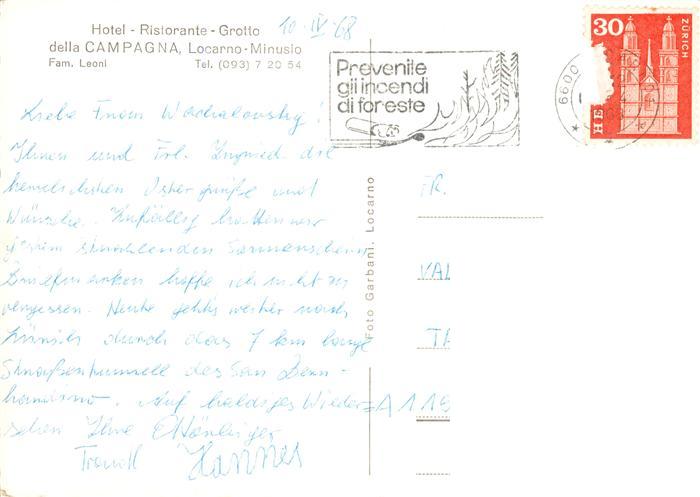 Hotel - Ristorante - Grotto
della CAMPAGNA, Locarno-Minusio
Fam. Leoni Tel. (093) 7 20 54
10.IV.68
Prevenite
gli incendi
di foreste
6600
30
ZÜRICH
HE
Liebe Frau
Ihnen und Frl. Ingrid die
herzlichsten Ostergrüße und
Wünsche. Zufällig hatten wir
gestern strahlenden Sonnenschein
Briefmarken hoffe ich nicht zu
vergessen. Heute geht's weiter nach
Zürich durch das 7 km lange
Straßentunnell des San Bern-
hardino. Auf baldiges Wieder-
sehen Ihre
Trautl Hannes
Foto Garbani, Locarno
FR.
VAL
TA
A 119